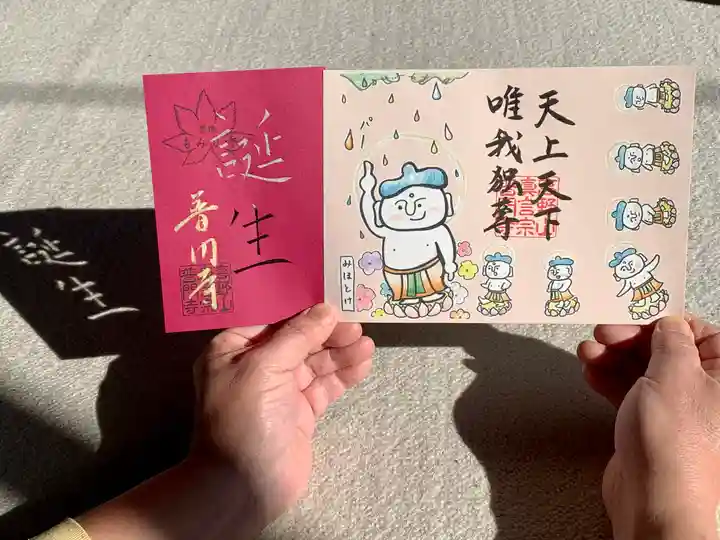 誕生
普円寺
天上天下
唯我独尊
パー
みほとけ
誕生